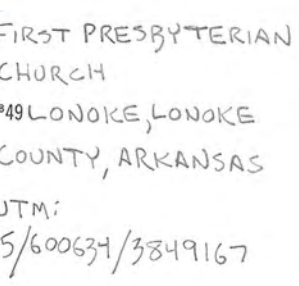 FIRST PRESBYTERIAN
CHURCH
#49 LONOKE, LONOKE
COUNTY, ARKANSAS
UTM:
5/600634/3849167